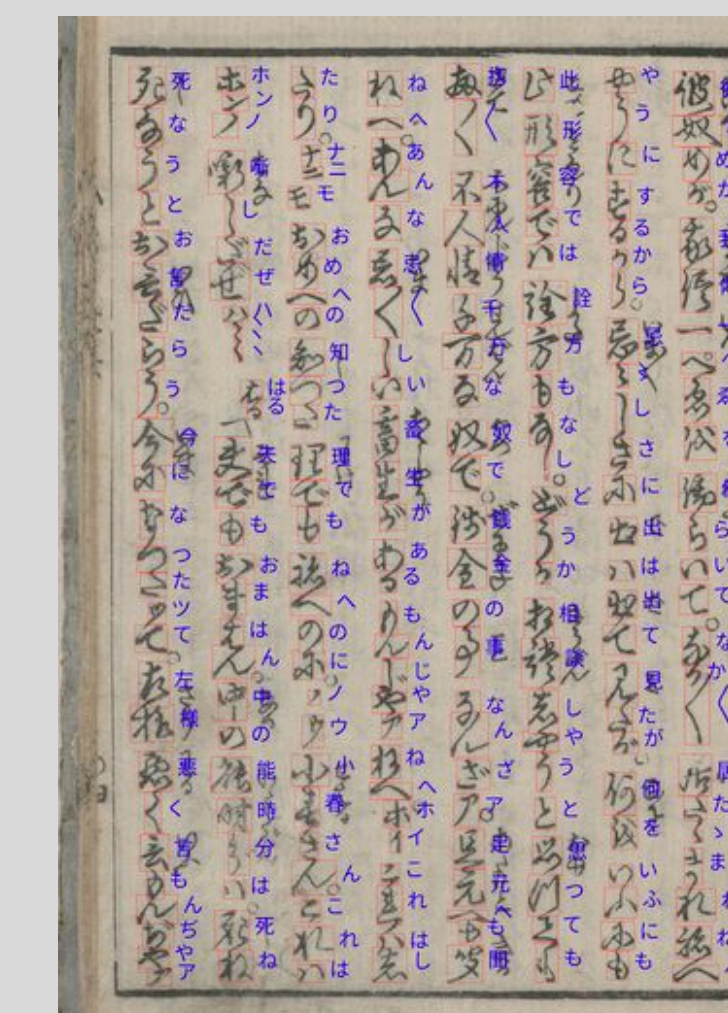 彼奴めが。 らいて。なか〱
やうにするから。忌〻しさに出は出て見たが何をいふにも
此形容では詮方もなし。どうか相談しやうと思つても
扨〱不人情千万な奴で銭金の事なんざア足元へも聞
ねへ。あんな忌〱しい畜生があるもんじやアねへホイこれはし
たり。ナニモおめへの知つた理でもねへのに。ノウ小春さん。これは
ホンノ噺しだぜハヽヽはる夫でもおまはん。中の能時分は死ね
死なうとお言だらう。今になつたツて。左様悪く言もんぢやア